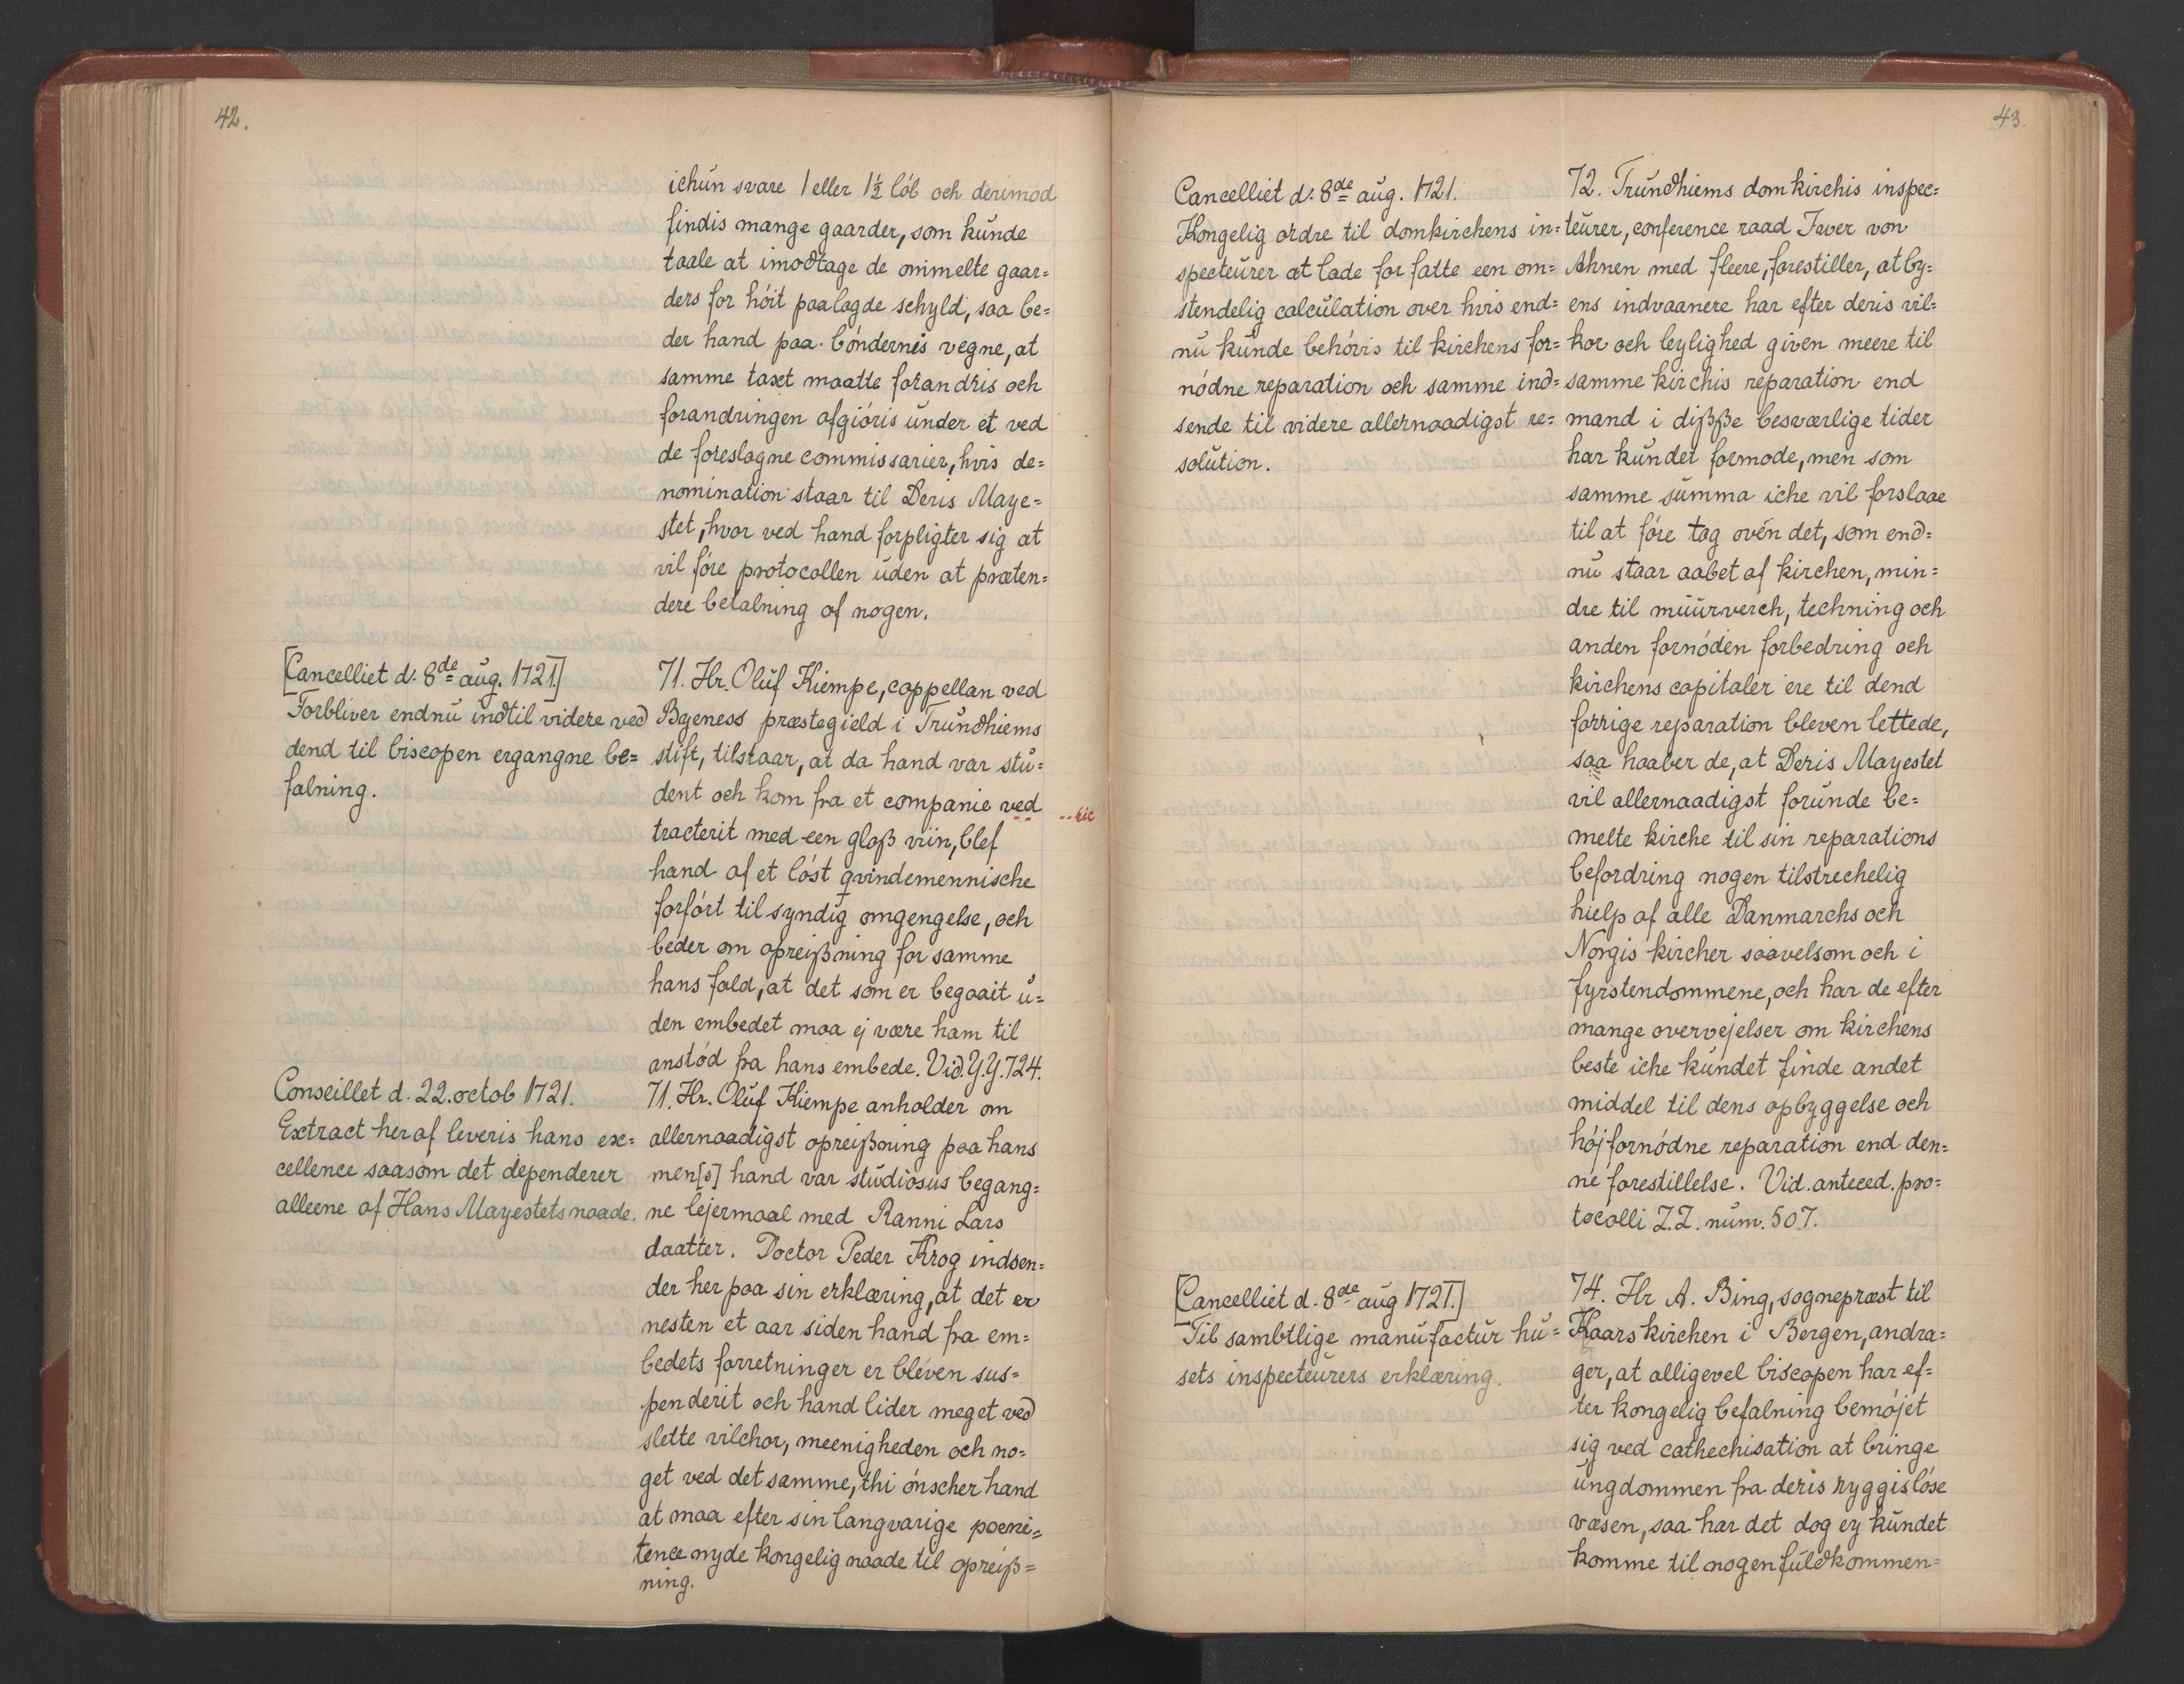 42.
ichun svare 1 eller 1½ löb och derimod
findis mange gaarder, som kunde
taale at imodtage de ommelte gaar=
ders for höit paalagde schyld, saa be=
der hand paa böndernis vegne, at
samme taxt maatte forandris och
forandringen afgiöris under et ved
de foreslagne commissarier, hvis de=
nomination staar til Deris Maye=
stet, hvor ved hand forpligter sig at
vil före protocollen uden at præten=
dere betalning af nogen.
[Cancelliet d. 8de aug. 1721.]
Forbliver endnu indtil videre ved
dend til biscopen ergangne be=
falning.
71. Hr. Oluf Kiempe, cappellan ved
Byeness præstegield i Trundhiems
stift, tilstaar, at da hand var stu=
dent och kom fra et companie ved
..sic
tracterit med een glaß viin, blef
hand af et löst qvindemennische
forfört til syndig omgengelse, och
beder om opreißning for samme
hans fald, at det som er begaait u=
den embedet maa ej være ham til
anstöd fra hans embede. Vid. Y.Y. 724.
Conseillet d. 22. octob 1721.
Extract heraf leveris hans ex=
cellence saasom det dependerer
alleene af Hans Mayestets naade.
71. Hr. Oluf Kiempe anholder om
allernaadigst opreißning paa hans
men[s] hand var studiosus begang=
ne lejermaal med Ranni Lars
daatter. Doctor Peder Krog indsen=
der her paa sin erklæring, at det er
nesten et aar siden hand fra em=
bedets forretninger er bleven sus=
penderit och hand lider meget ved
slette vilchor, meenigheden och no=
get ved det samme, thi önscher hand
at maa efter sin langvarige poeni=
tence nyde kongelig naade til opreiß=
ning.
43.
Cancelliet d. 8de aug. 1721.
Kongelig ordre til domkirchens in=
specteurer at lade forfatte een om=
stendelig calculation over hvis end=
nu kunde behövis til kirchens for=
nödne reparation och samme ind=
sende til videre allernaadigst re=
solution.
72. Trundhiems domkirchis inspec=
teurer, conference raad Iver von
Ahnen med fleere, forestiller, at by=
ens indvaanere har efter deris vil=
kor och leylighed given meere til
samme kirchis reparation end
mand i dißße besværlige tider
har kundet formode, men som
samme summa iche vil forslaae
til at före tag oven det, som end=
nu staar aabet af kirchen, min=
dre til muurverch, techning och
anden fornöden forbedring och
kirchens capitaler ere til dend
forrige reparation bleven lettede,
saa haaber de, at Deris Mayestet
vil allernaadigst forunde be=
melte kirche til sin reparations
befordring nogen tilstrechelig
hielp af alle Danmarchs och
Norgis kircher saavelsom och i
fyrstendommene, och har de efter
mange overvejelser om kirchens
beste iche kundet finde andet
middel til dens opbyggelse och
höjfornödne reparation end den=
ne forestillelse. Vid. anteced. pro=
tocolli Z.Z. num. 507.
[Cancelliet d. 8de aug 1721.]
Til sambtlige manufactur hu=
sets inspecteurers erklæring.
74. Hr A. Bing, sognepræst til
Kaarskirchen i Bergen, andra=
ger, at alligevel biscopen har ef=
ter kongelig befalning bemöjet
sig ved cathechisation at bringe
ungdommen fra deris ryggislöse
væsen, saa har det dog ey kundet
komme til nogen fuldkommen=